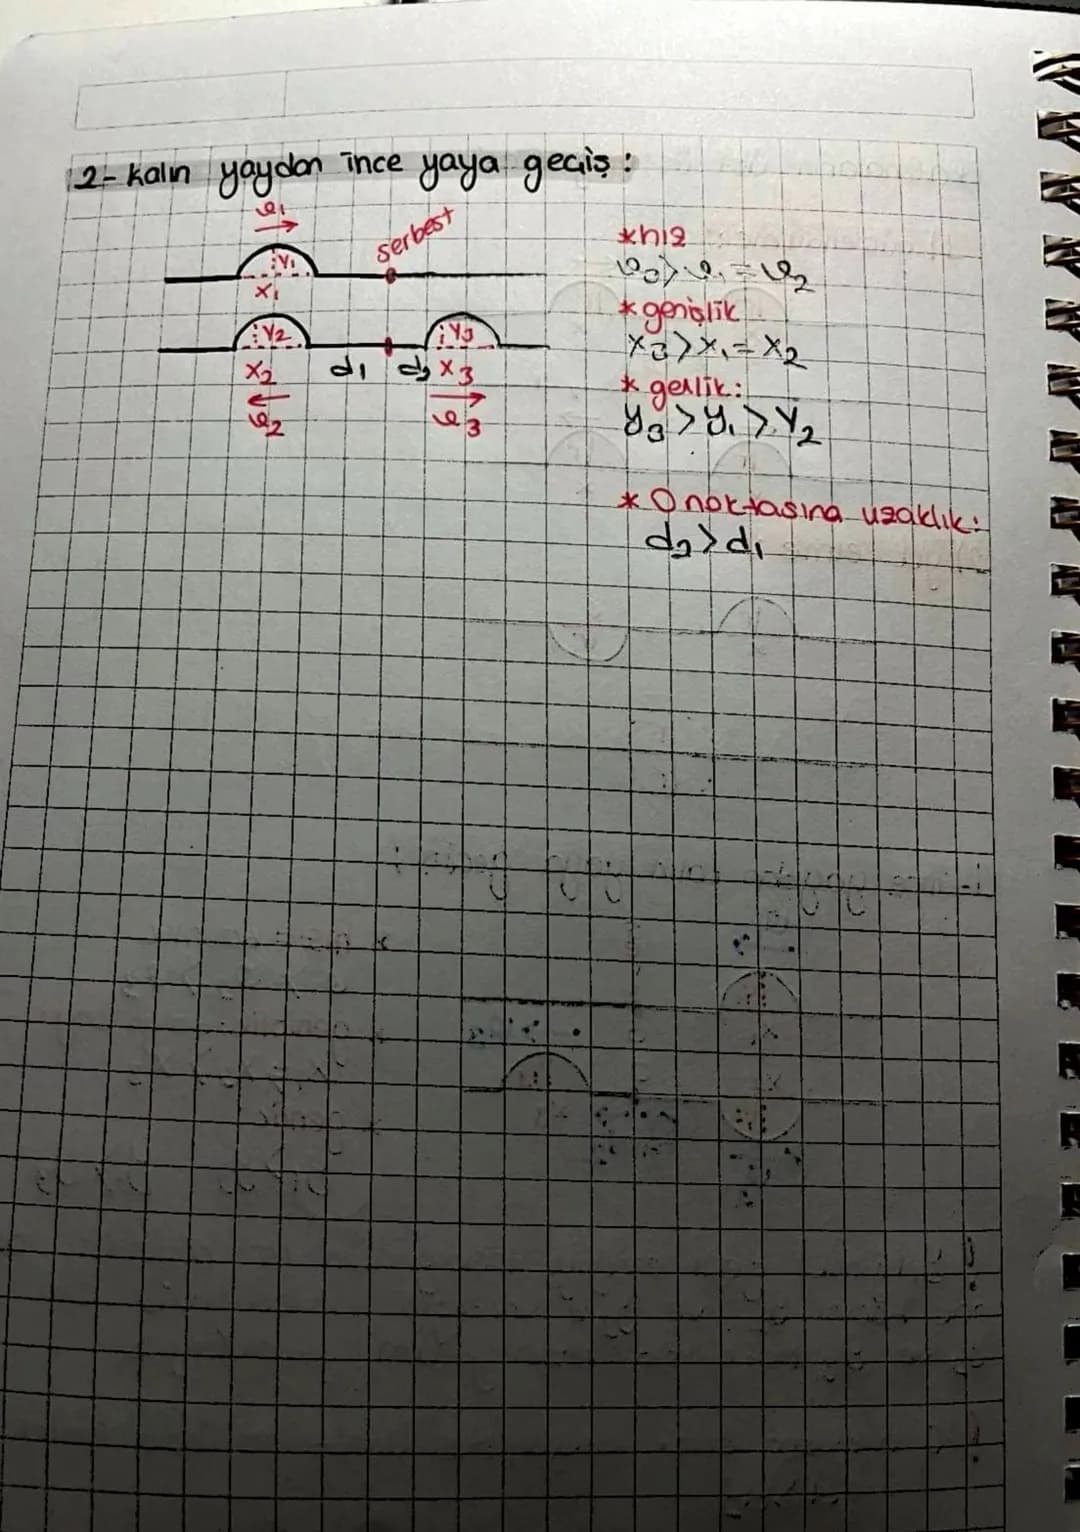 2- kalın yaydan ince yaya geçiş :
υ₁
serbest
y₁
x₁
y₂
y₃
x₂
d₁
d₂
x₃
υ₂
υ₃
*hız
υ₃ > υ₁ = υ₂
*genişlik
x₃ > x₁ = x₂
* genlik:
y₃ > y₁ > y₂
* O noktasına uzaklık:
d₂ > d₁